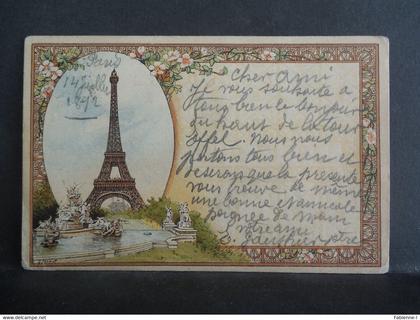 Paris
14 Juillet
Cher Ami
Je vous souhaite a
tous bien le bonjour
du haut de la tour
Effel. Nous nous
portons tous bien et
desirons que la presente
vous trouve de même
une bonne et amicale
poignee de main
votre ami
© fabienne-l